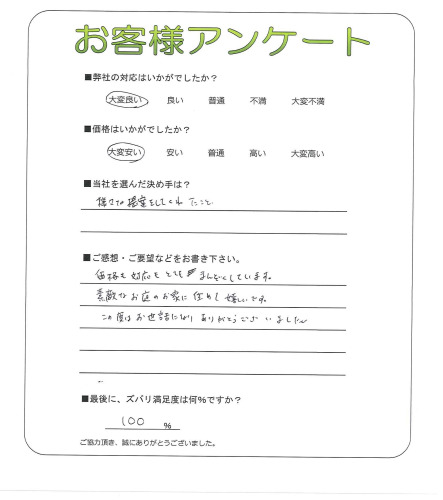 お客様アンケート
■弊社の対応はいかがでしたか？
大変良い 良い 普通 不満 大変不満
■価格はいかがでしたか？
大変安い 安い 普通 高い 大変高い
■当社を選んだ決め手は？
提案をしてくれたこと
■ご感想・ご要望などをお書き下さい。
価格も対応もとても まんぞくしています。
素敵なお庭のお家に住めて嬉しいです。
この度はお世話になりありがとうございました
■最後に、ズバリ満足度は何％ですか？
100 %
ご協力頂き、誠にありがとうございました。